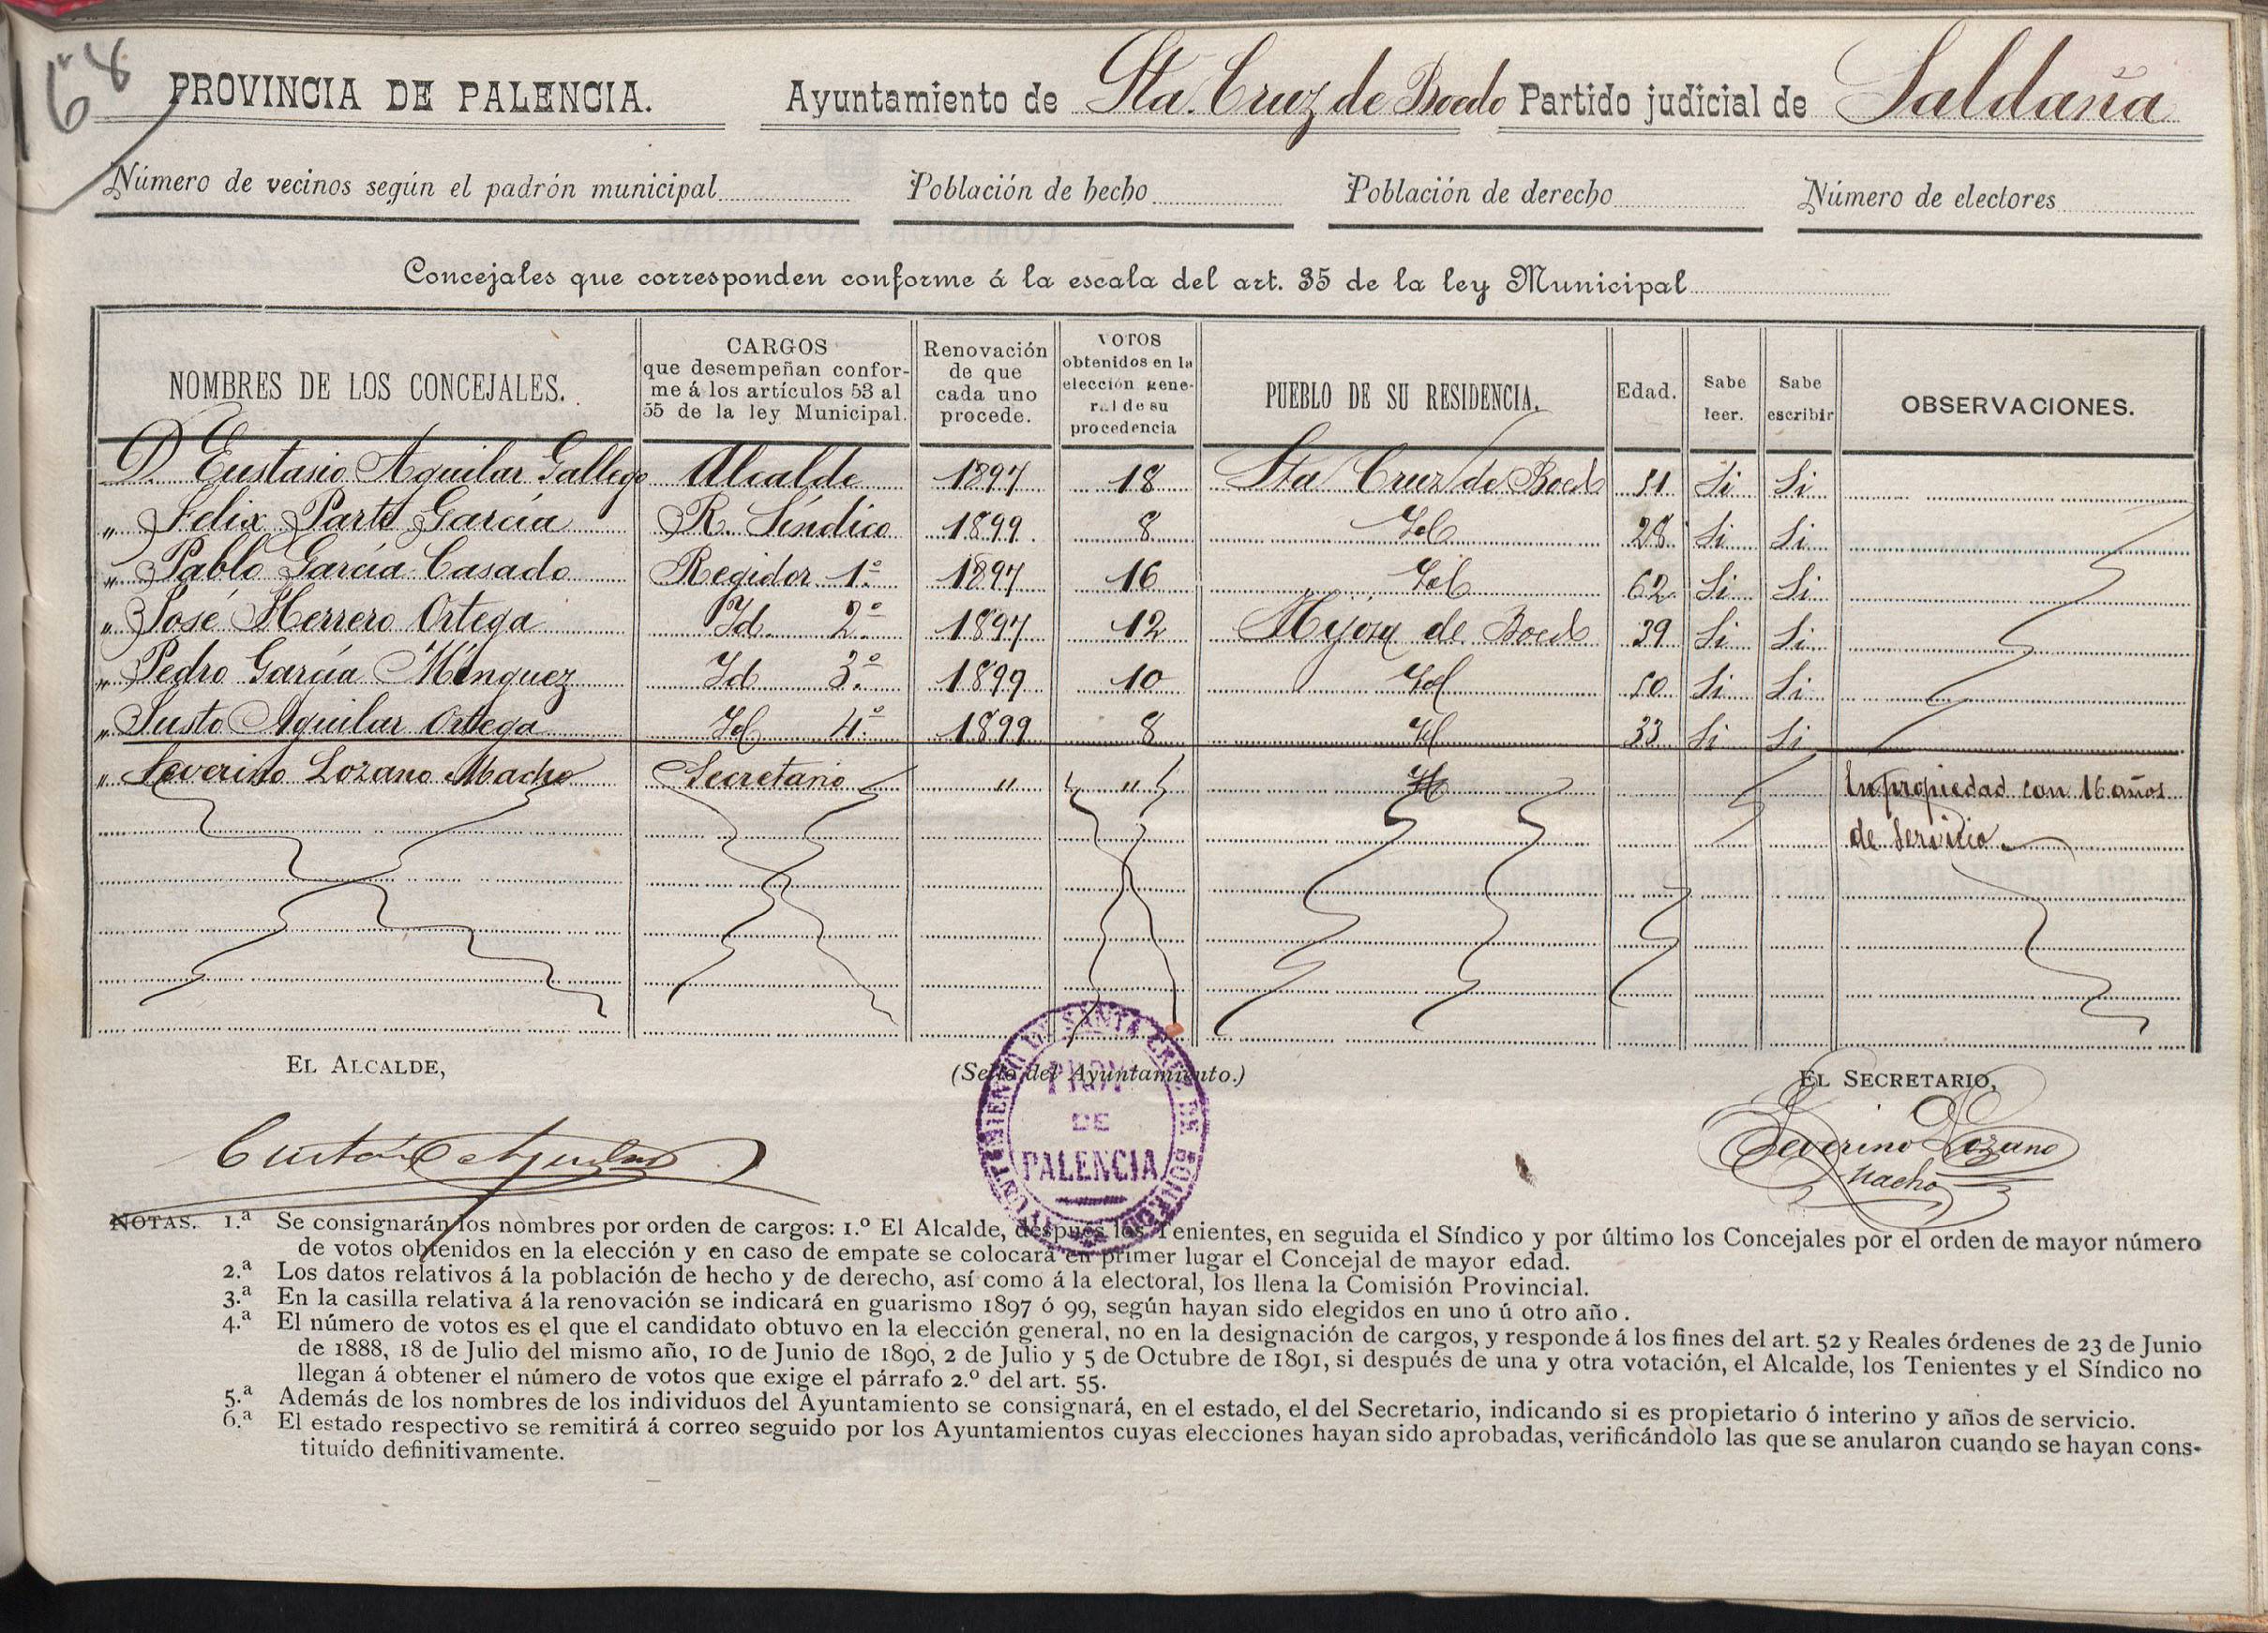 168
PROVINCIA DE PALENCIA. Ayuntamiento de Sta. Cruz de Boedo Partido judicial de Saldaña
Número de vecinos según el padrón municipal Población de hecho Población de derecho Número de electores
Concejales que corresponden conforme á la escala del art. 35 de la ley Municipal
NOMBRES DE LOS CONCEJALES.
CARGOS
que desempeñan confor-
me á los artículos 53 al
55 de la ley Municipal.
Renovación
de que
cada uno
procede.
VOTOS
obtenidos en la
elección gene-
ral de su
procedencia
PUEBLO DE SU RESIDENCIA.
Edad.
Sabe
leer.
Sabe
escribir
OBSERVACIONES.
D. Eustasio Aguilar Gallego Alcalde 1897 18 Sta Cruz de Boedo 51 Si Si
" Felix Parte García R. Síndico 1899 8 Id 28 Si Si
" Pablo García Casado Regidor 1.º 1897 16 Id 62 Si Si
" José Herrero Ortega Id. 2.º 1897 12 Hijosa de Boedo 39 Si Si
" Pedro García Minguez Id 3.º 1899 10 Id 50 Si Si
" Justo Aguilar Ortega Id 4.º 1899 8 Id 33 Si Si
" Severino Lozano Macho Secretario " " Id En propiedad con 16 años
de servicio.
EL ALCALDE, (Sello del Ayuntamiento.) EL SECRETARIO,
AYUNTAMIENTO DE SANTA CRUZ DE BOEDO
PROV.ª
DE
PALENCIA
Eustasio Aguilar
Severino Lozano
Macho
NOTAS. 1.ª Se consignarán los nombres por orden de cargos: 1.º El Alcalde, después los Tenientes, en seguida el Síndico y por último los Concejales por el orden de mayor número
de votos obtenidos en la elección y en caso de empate se colocará en primer lugar el Concejal de mayor edad.
2.ª Los datos relativos á la población de hecho y de derecho, así como á la electoral, los llena la Comisión Provincial.
3.ª En la casilla relativa á la renovación se indicará en guarismo 1897 ó 99, según hayan sido elegidos en uno ú otro año.
4.ª El número de votos es el que el candidato obtuvo en la elección general, no en la designación de cargos, y responde á los fines del art. 52 y Reales órdenes de 23 de Junio
de 1888, 18 de Julio del mismo año, 10 de Junio de 1890, 2 de Julio y 5 de Octubre de 1891, si después de una y otra votación, el Alcalde, los Tenientes y el Síndico no
llegan á obtener el número de votos que exige el párrafo 2.º del art. 55.
5.ª Además de los nombres de los individuos del Ayuntamiento se consignará, en el estado, el del Secretario, indicando si es propietario ó interino y años de servicio.
6.ª El estado respectivo se remitirá á correo seguido por los Ayuntamientos cuyas elecciones hayan sido aprobadas, verificándolo las que se anularon cuando se hayan cons-
tituído definitivamente.